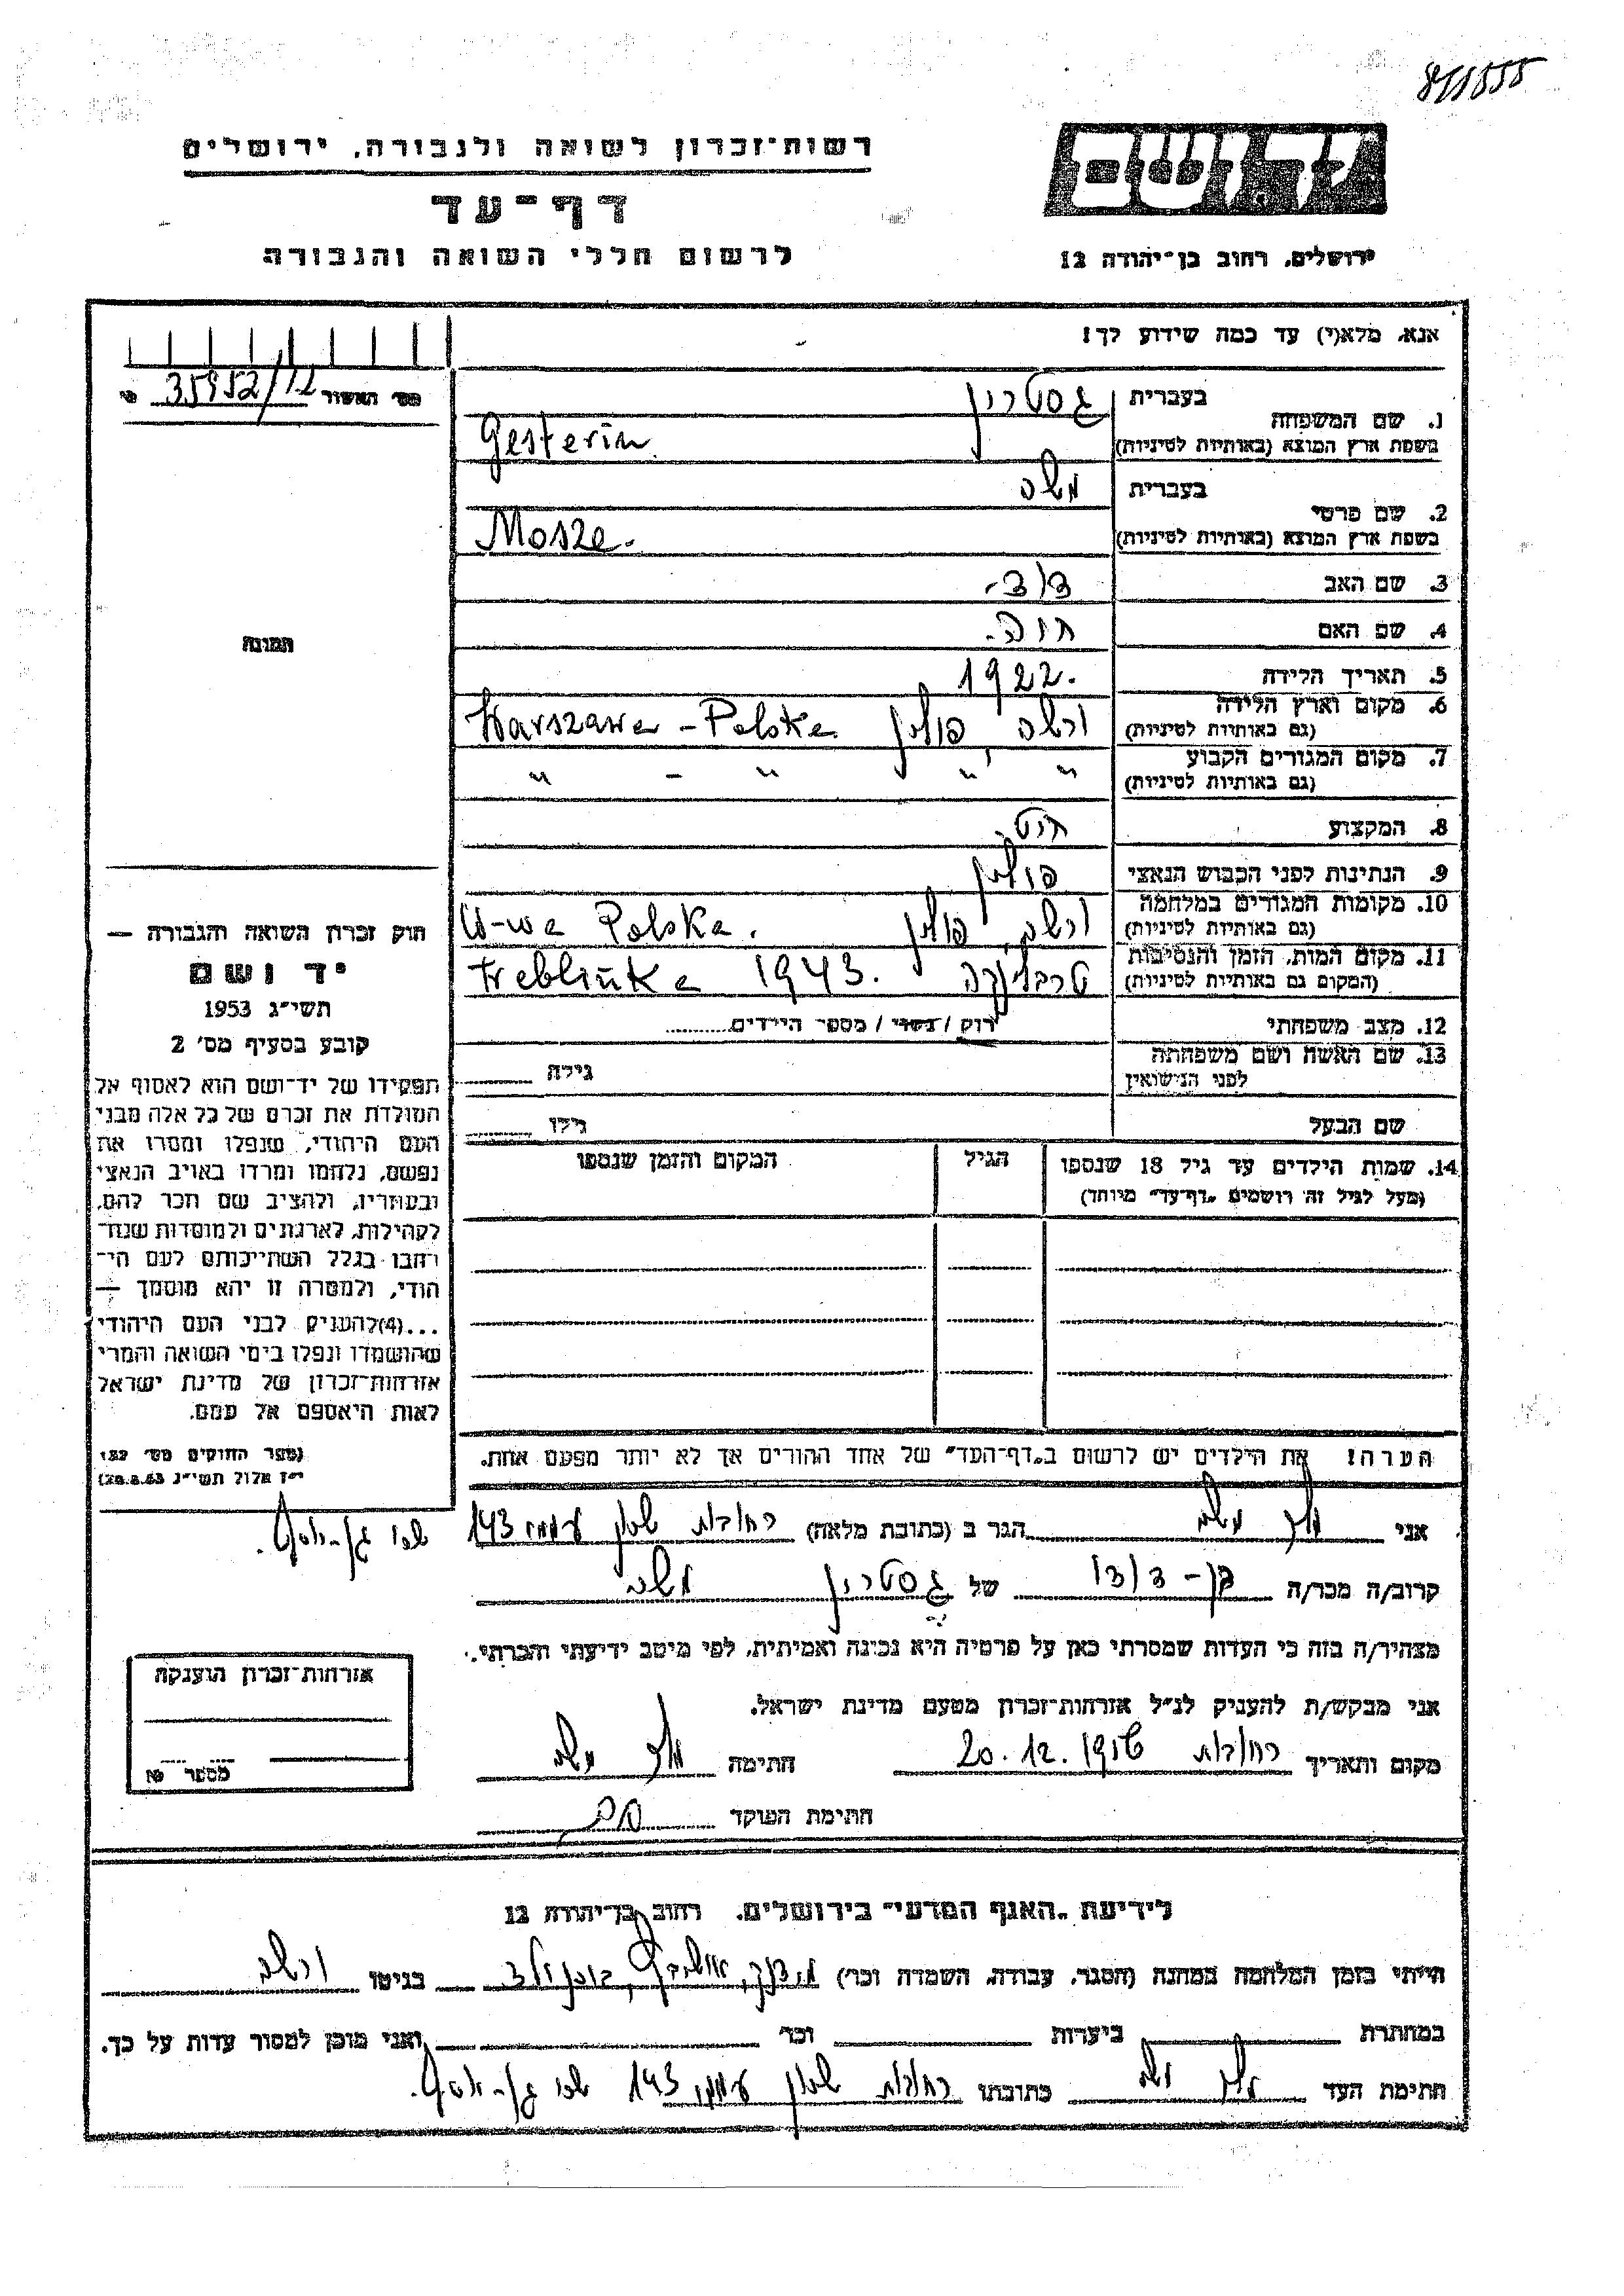 רשות־זכרון לשואה ולגבורה, ירושלים
דף־עד
לרשום חללי השואה והגבורה
יד ושם
ירושלים, רחוב בן־יהודה 12
אנא, מלא(י) עד כמה שידוע לך!
מס׳ האשור 35952/12
1. שם המשפחה בעברית גסטרין
בשפת ארץ המוצא (באותיות לטיניות) Gesterin
2. שם פרטי בעברית משה
בשפת ארץ המוצא (באותיות לטיניות) Mosze.
3. שם האב דוד-
4. שם האם חוה-
5. תאריך הלידה 1922.
6. מקום וארץ הלידה (גם באותיות לטיניות) ורשה, פולין Warszawa - Polska
7. מקום המגורים הקבוע (גם באותיות לטיניות) " " " - "
8. המקצוע חיט
9. הנתינות לפני הכבוש הנאצי פולין
10. מקומות המגורים במלחמה (גם באותיות לטיניות) ורשה, פולין W-wa Polska.
11. מקום המות, הזמן והנסיבות (המקום גם באותיות לטיניות) טרבלינקה Treblinka 1943.
12. מצב משפחתי רוק / נשוי / מספר הילדים
13. שם האשה ושם משפחתה לפני הנישואין גילה
שם הבעל גילו
14. שמות הילדים עד גיל 18 שנספו הגיל המקום והזמן שנספו
(מעל לגיל זה רושמים „דף־עד” מיוחד)
הערה! את הילדים יש לרשום ב„דף־העד” של אחד ההורים אך לא יותר מפעם אחת.
תמונה
חוק זכרון השואה והגבורה —
יד ושם
תשי״ג 1953
קובע בסעיף מס׳ 2
תפקידו של יד־ושם הוא לאסוף אל
המולדת את זכרם של כל אלה מבני
העם היהודי, שנפלו ומסרו את
נפשם, נלחמו ומרדו באויב הנאצי
ובעוזריו, ולהציב שם וזכר להם,
לקהילות, לארגונים ולמוסדות שנח־
רבו בגלל השתייכותם לעם הי־
הודי, ולמטרה זו יהא מוסמך —
...(4) להעניק לבני העם היהודי
שהושמדו ונפלו בימי השואה והמרי
אזרחות־זכרון של מדינת ישראל
לאות היאספם אל עמם.
(ספר החוקים מס׳ 132
י״ז אלול תשי״ג 28.8.53)
אני משה הגר ב (כתובת מלאה) רחובות שכון עממי 143
קרוב/ה מכר/ה בן-דודו של גסטרין משה
מצהיר/ה בזה כי העדות שמסרתי כאן על פרטיה היא נכונה ואמיתית, לפי מיטב ידיעתי והכרתי.
אני מבקש/ת להעניק לנ״ל אזרחות־זכרון מטעם מדינת ישראל.
מקום ותאריך רחובות 20.12.1956 חתימה משה
חתימת הפוקד
אזרחות־זכרון הוענקה
מספר №
לידיעת „האגף המדעי” בירושלים, רחוב בן־יהודה 12
הייתי בזמן המלחמה במחנה (הסגר, עבודה, השמדה וכו׳) מידנק, אושביץ, בוכנולד בגיטו ורשה
במחתרת ביערות וכו׳ ואני מוכן למסור עדות על כך.
חתימת העד משה כתובתו רחובות שכון עממי 143